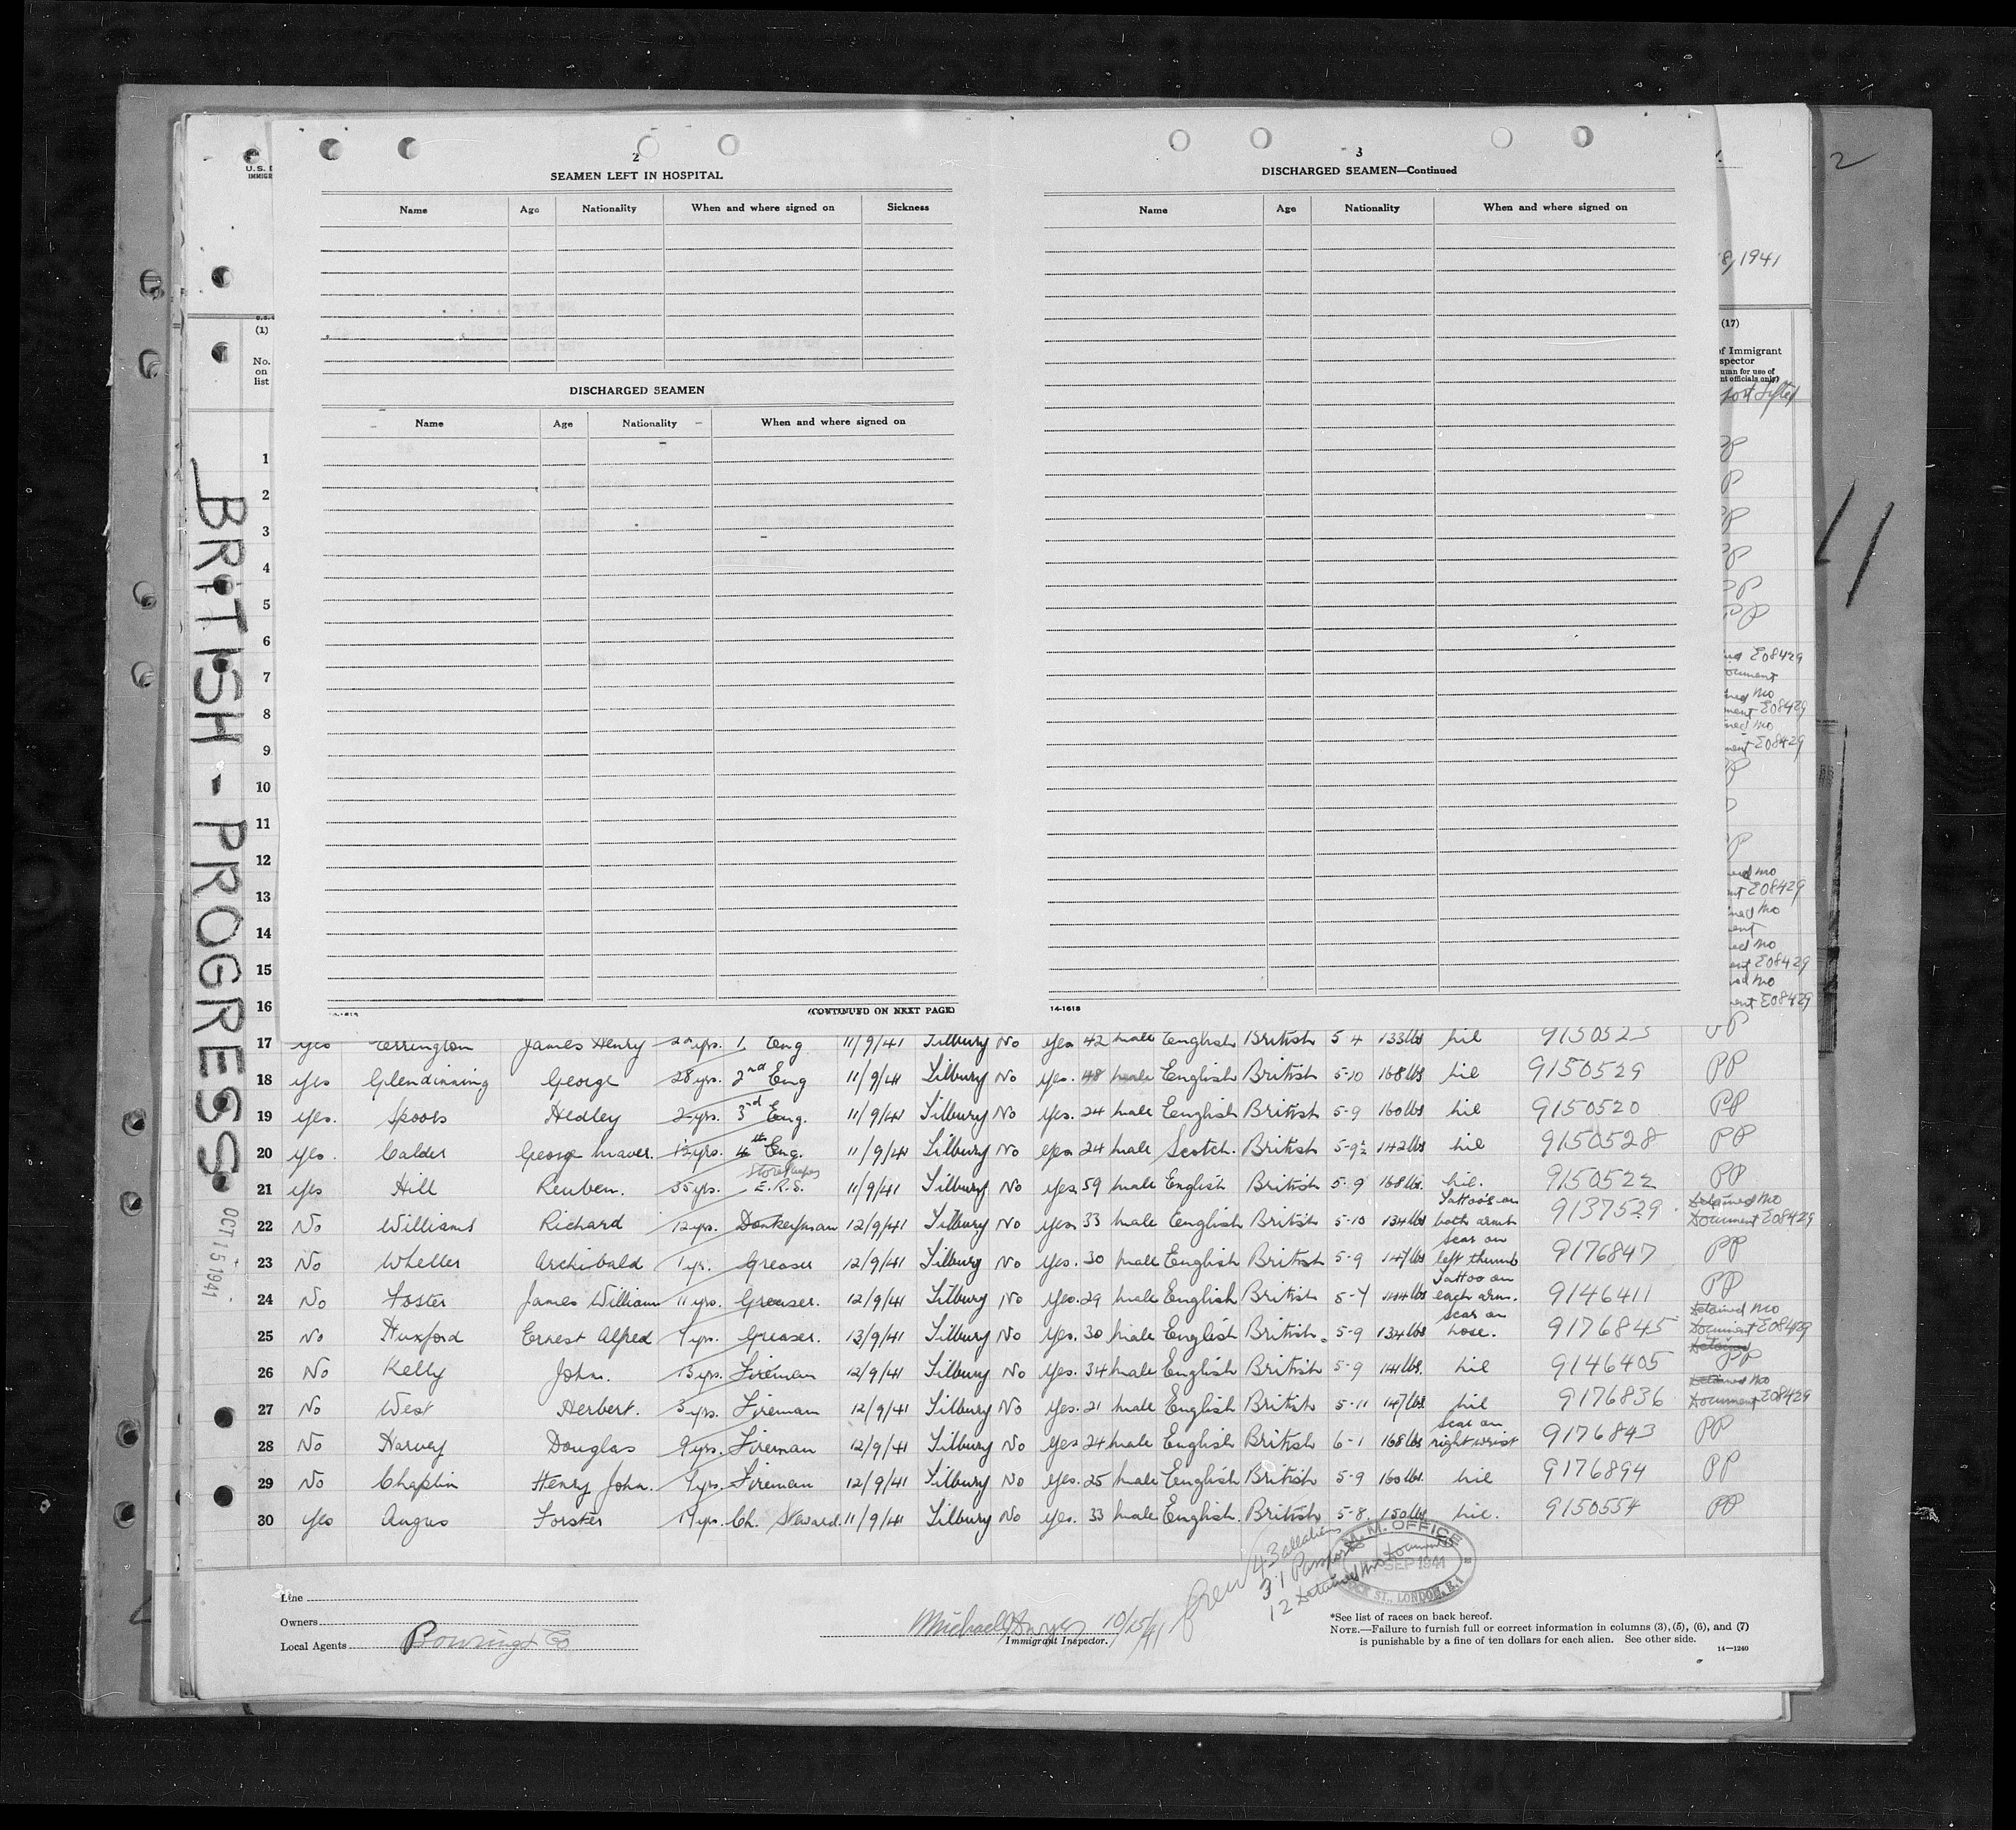 2
SEAMEN LEFT IN HOSPITAL
Name Age Nationality When and where signed on Sickness
DISCHARGED SEAMEN
Name Age Nationality When and where signed on
(CONTINUED ON NEXT PAGE)
3
DISCHARGED SEAMEN—Continued
Name Age Nationality When and where signed on
14-1618
2
11
U.S.
IMMIGR
(1)
No.
on
list
8, 1941
(17)
of Immigrant
spector
nt officials only)
BRITISH - PROGRESS
OCT 15 1941
1
2
3
4
5
6
7
8
9
10
11
12
13
14
15
16
E08429
E08429
E08429
E08429
E08429
E08429
17 yes Errington James Henry Eng 11/9/41 Tilbury No yes 42 male English British 5 4 133lbs nil 9150523 PP
18 yes Glendinning George 28 yrs. 2nd Eng 11/9/41 Tilbury No yes. 48 male English British 5-10 168 lbs nil 9150529 PP
19 yes. Spoors Hedley 2 yrs. 3rd Eng. 11/9/41 Tilbury No yes. 24 male English British 5-9 160 lbs nil 9150520 PP
20 yes. Calder George Maver. 4th Eng. 11/9/41 Tilbury No yes 24 male Scotch. British 5-9½ 142 lbs nil 9150528 PP
21 yes Hill Reuben. 35 yrs. Storekeeper E.R.S. 11/9/41 Tilbury No yes 59 male English British 5-9 168 lbs. nil. 9150522 PP
22 No Williams Richard 12 yrs. Donkeyman 12/9/41 Tilbury No yes 33 male English British 5-10 134 lbs Tattoos on both arms 9137529 Detained no Document E08429
23 No Wheller Archibald 1 yr. Greaser 12/9/41 Tilbury No yes. 30 male English British 5-9 147 lbs scar on left thumb 9176847 PP
24 No Foster James William 11 yrs. Greaser. 12/9/41 Tilbury No yes. 29 male English British 5-7 144 lbs Tattoo on each arm. 9146411 PP
25 No Huxford Ernest Alfred Greaser. 13/9/41 Tilbury No yes. 30 male English British. 5-9 134 lbs scar on nose. 9176845 Detained no Document E08429
26 No Kelly John. 13 yrs. Fireman 12/9/41 Tilbury No yes. 34 male English British 5-9 141 lbs. nil 9146405 Detained PP
27 No West Herbert. 3 yrs. Fireman 12/9/41 Tilbury No yes. 21 male English British 5-11 147 lbs. nil 9176836 Detained no Document E08429
28 No Harvey Douglas 9 yrs. Fireman 12/9/41 Tilbury No yes 24 male English British 6-1 168 lbs scar on right wrist 9176843 PP
29 No Chaplin Henry John. Fireman 12/9/41 Tilbury No yes. 25 male English British 5-9 160 lbs. nil 9176894 PP
30 yes Angus Forster Ch. Steward. 11/9/41 Tilbury No yes. 33 male English. British 5-8. 150 lbs nil. 9150554 PP
Crew 43 all aliens
31 Passports
12 Detained no Documents
M.M. OFFICE
SEP 1941
ST., LONDON, E.1
Line
Owners
Local Agents Bowring & Co
Michael 10/15/41
Immigrant Inspector.
*See list of races on back hereof.
NOTE.—Failure to furnish full or correct information in columns (3), (5), (6), and (7)
is punishable by a fine of ten dollars for each alien. See other side.
14—1240